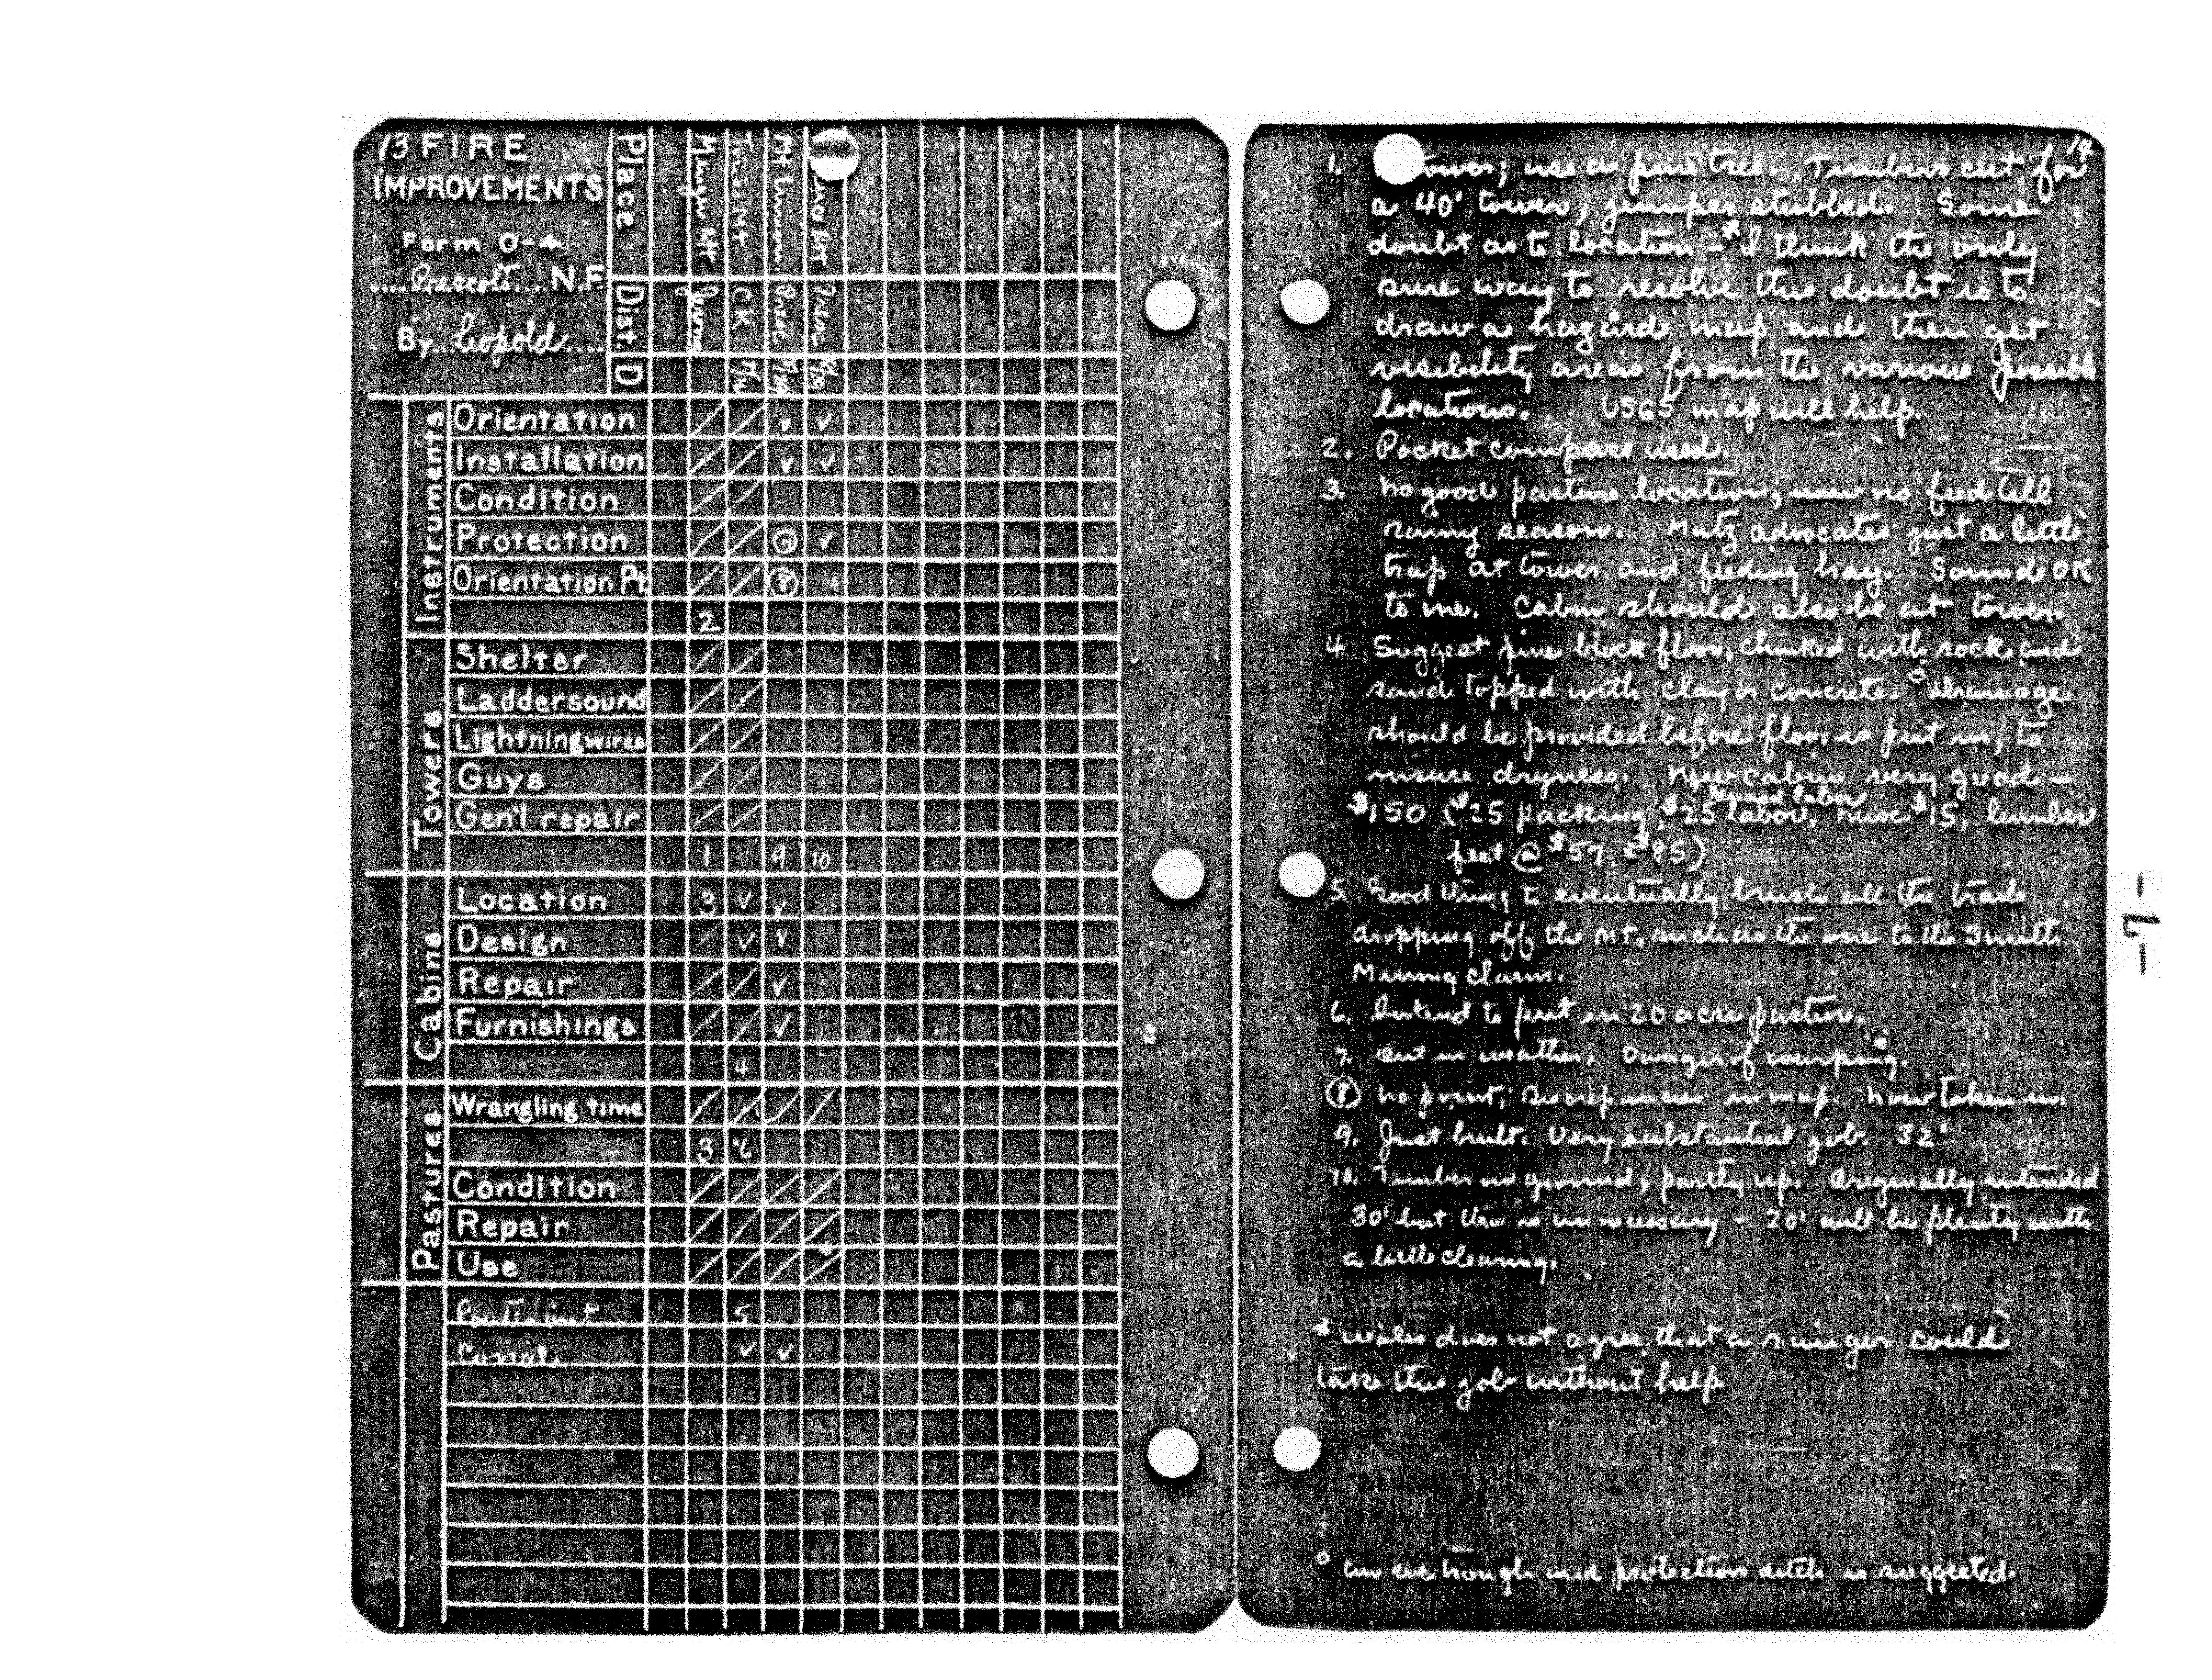 13 FIRE
IMPROVEMENTS
Form O-4
Prescott N.F.
By Leopold
Place
Mt Union
Dist
Jerome
CK
Presc
Presc
D
8/16
8/29
Instruments
Orientation / / v v
Installation / / v v
Condition / /
Protection / / 7 v
Orientation Pt / / 8
2
Towers
Shelter / /
Laddersound / /
Lightningwires / /
Guys / /
Gen'l repair / /
1 9 10
Cabins
Location 3 v v
Design / v v
Repair / / v
Furnishings / / v
4
Pastures
Wrangling time / / / /
3 6
Condition / / / /
Repair / / / /
Use / / / /
5
Corral v v
14
1. tower; use a pine tree. Timbers cut for
a 40' tower, juniper stubbed. Some
doubt as to location - * I think the only
sure way to resolve this doubt is to
draw a hazard map and then get
visibility areas from the various possible
locations. USGS map will help.
2. Pocket compass used.
3. No good pasture location, no feed till
rainy season. Mutz advocates just a little
trap at tower and feeding hay. Sounds OK
to me. Cabin should also be at tower.
4. Suggest pine block floor, chinked with rock and
sand topped with clay or concrete. ° Drainage
should be provided before floor is put in, to
insure dryness. New cabin very good -
$150 ($25 packing, $25 labor, misc $15, lumber
feet @ $57 $85)
5. Good thing to eventually brush all the trails
dropping off the Mt, such as the one to the Smith
Mining claim.
6. Intend to put in 20 acre pasture.
7. Out in weather. Danger of warping.
8 No point; discrepancies in map. Now taken in.
9. Just built. Very substantial job. 32'
10. Timber on ground, partly up. Originally intended
30' but this is unnecessary - 20' will be plenty with
a little clearing.
* Wales does not agree that a ranger could
take this job without help.
° an eve trough and protection ditch is suggested.
-7-